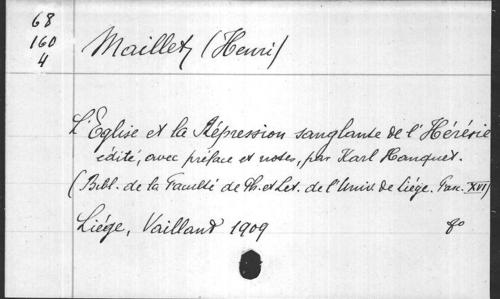 68
160
4
Maillet, (Henri)
L'Eglise et la Répression sanglante de l'Hérésie
édité, avec préface et notes, par Karl Hanquet.
(Bibl. de la Faculté de Ph. et Let. de l'Univ. de Liége. Fasc. XVI)
Liége, Vaillant 1909